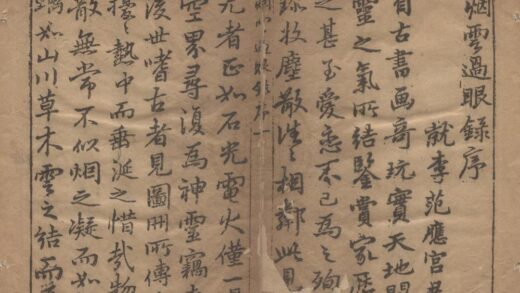 烟雲過眼錄序
就李范應宮
有古書画奇玩實天地間
靈之氣所結鑒賞家歷
之甚至愛恋不已為之殉
錄收塵散徃々相鄰此見
光者正如石光電火僅一
空界尋復為神靈竊
後世嗜古者見圖冊所傳
擾々熱中而垂涎之惜哉物
散無常不似烟之凝而如
如山川草木雲之結而